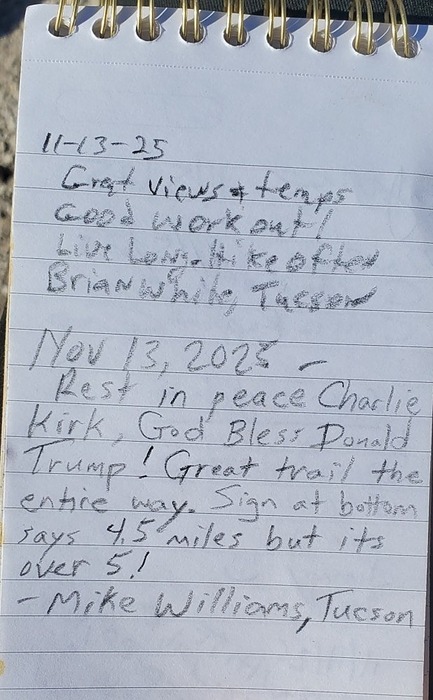 11-13-25
Grat views + temps
Good work out!
Live Long-Hike often
Brian While, Tucson
Nov 13, 2025 -
Rest in peace Charlie
Kirk, God Bless Donald
Trump! Great trail the
entire way. Sign at bottom
says 4.5 miles but its
over 5!
- Mike Williams, Tucson